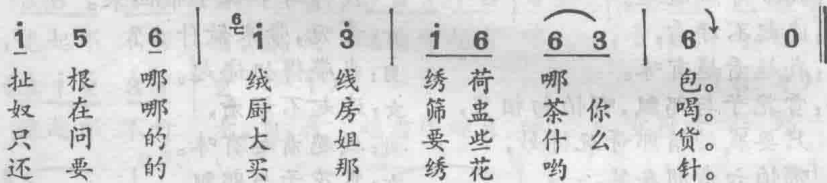 i̇ 5 6 | 6 i̇ 3̇ | i̇ 6 6 3 | 6 0 ‖
扯 根 哪 绒 线 绣 荷 哪 包。
奴 在 哪 厨 房 筛 盅 茶 你 喝。
只 问 的 大 姐 要 些 什 么 货。
还 要 的 买 那 绣 花 哟 针。